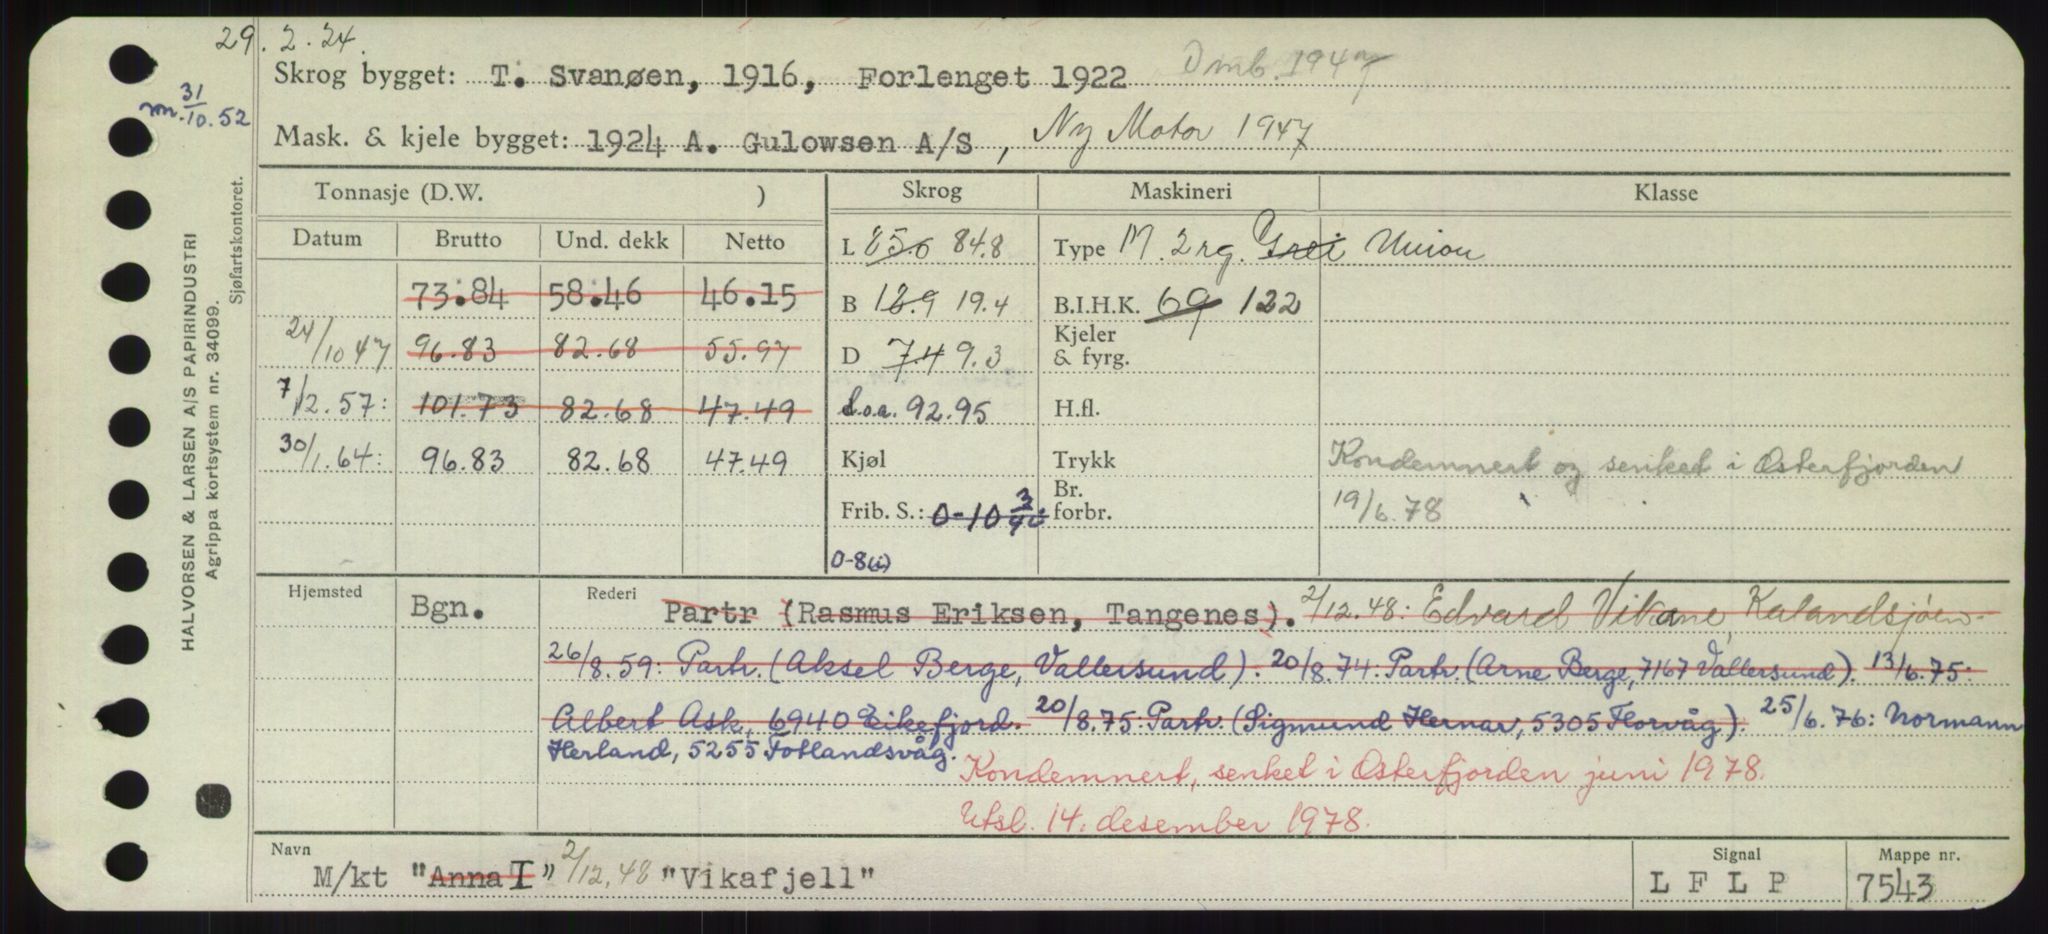 29.2.24.
Skrog bygget: T. Svanøen, 1916, Forlenget 1922 Omb. 1947
m. 31/10.52
Mask. & kjele bygget: 1924 A. Gulowsen A/S, Ny Motor 1947
HALVORSEN & LARSEN A/S PAPIRINDUSTRI
Agrippa kortsystem nr. 34099.
Sjøfartskontoret.
Tonnasje (D.W. ) Skrog Maskineri Klasse
Datum Brutto Und. dekk Netto L 85.0 84.8 Type M. 2 rg. Grei Union
73.84 58.46 46.15 B 18.9 19.4 B.I.H.K. 69 122
24/10 47 96.83 82.68 55.97 D 7.4 9.3 Kjeler & fyrg.
7/2.57: 101.73 82.68 47.49 L.o.a. 92.95 H.fl.
30/1.64: 96.83 82.68 47.49 Kjøl Trykk Kondemnert og senket i Osterfjorden
Frib. S.: 0-10 3/4 Br. forbr. 19/6.78
0-8(i)
Hjemsted Bgn. Rederi Partr (Rasmus Eriksen, Tangenes). 2/12.48: Edvard Vikane Kalandsjøen.
26/8.59: Partr. (Aksel Berge, Vallersund). 20/8.74: Partr. (Arne Berge, 7167 Vallersund). 13/6.75:
Albert Ask, 6940 Eikefjord. 20/8.75: Partr. (Sigmund Hernar, 5305 Florvåg). 25/6.76: Normann
Herland, 5255 Fotlandsvåg.
Kondemnert, senket i Osterfjorden juni 1978.
Utsl. 14. desember 1978.
Navn Signal Mappe nr.
M/kt "Anna I" 2/12.48 "Vikafjell" L F L P 7543